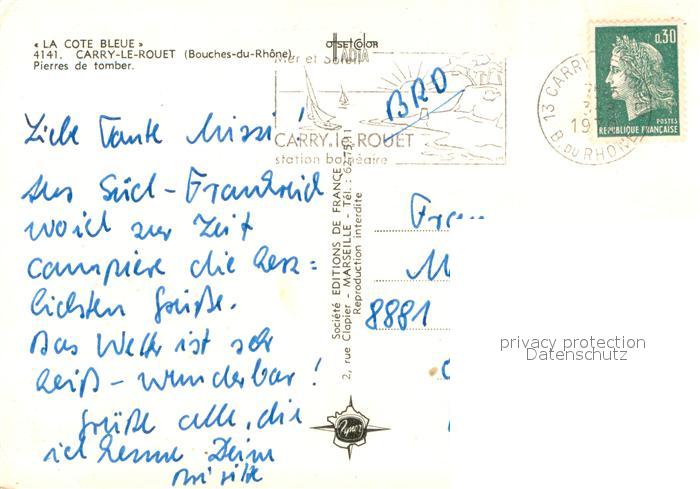 « LA COTE BLEUE »
4141. CARRY-LE-ROUET (Bouches-du-Rhône)
Pierres de tomber.
OFFSETCOLOR
Mer et Soleil
BRD
CARRY le ROUET
station balnéaire
13 CARRY
B. DU RHONE
0,30
POSTES
REPUBLIQUE FRANÇAISE
Société EDITIONS DE FRANCE
2, rue Clapier - MARSEILLE - Tél. : 62
Reproduction interdite
Liebe Tante Missi!
Aus Süd-Frankreich
wo ich zur Zeit
campiere die herz=
lichsten Grüße.
Das Wetter ist sehr
heiß - wunderbar!
Grüße alle, die
ich kenne Deine
Brigitte
8881
privacy protection
Datenschutz